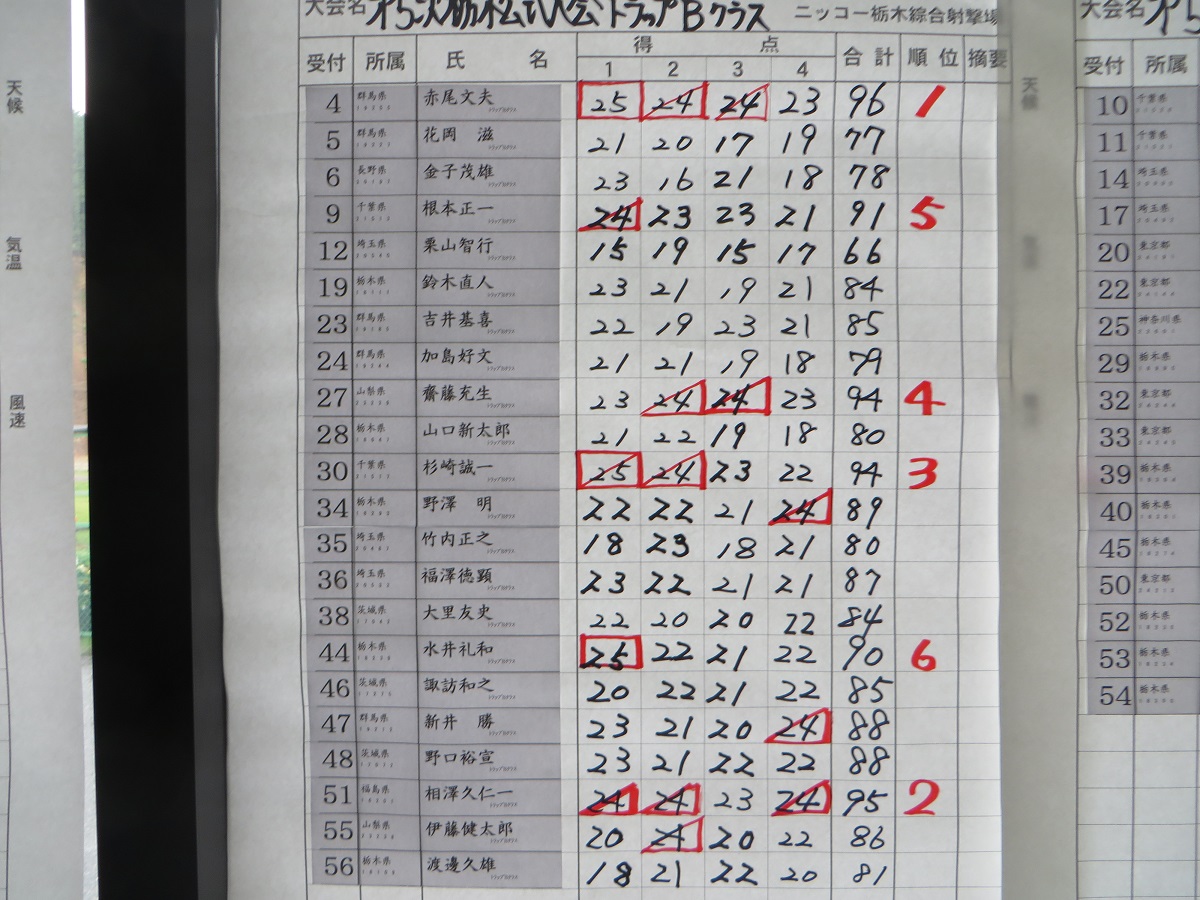 大会名 トラップBクラス ニッコー栃木綜合射撃場
受付 所属 氏名 得点 合計 順位 摘要
1 2 3 4
4 群馬県 赤尾文夫 25 24 24 23 96 1
5 群馬県 花岡 滋 21 20 17 19 77
6 長野県 金子茂雄 23 16 21 18 78
9 千葉県 根本正一 24 23 23 21 91 5
12 埼玉県 栗山智行 15 19 15 17 66
19 栃木県 鈴木直人 23 21 19 21 84
23 群馬県 吉井基喜 22 19 23 21 85
24 群馬県 加島好文 21 21 19 18 79
27 山梨県 齋藤充生 23 24 24 23 94 4
28 栃木県 山口新太郎 21 22 19 18 80
30 千葉県 杉崎誠一 25 24 23 22 94 3
34 栃木県 野澤 明 22 22 21 24 89
35 埼玉県 竹内正之 18 23 18 21 80
36 埼玉県 福澤徳顕 23 22 21 21 87
38 茨城県 大里友史 22 20 20 22 84
44 栃木県 水井礼和 25 22 21 22 90 6
46 茨城県 諏訪和之 20 22 21 22 85
47 群馬県 新井 勝 23 21 20 24 88
48 茨城県 野口裕宣 23 21 22 22 88
51 福島県 相澤久仁一 24 24 23 24 95 2
55 山梨県 伊藤健太郎 20 24 20 22 86
56 栃木県 渡邊久雄 18 21 22 20 81
天候
気温
風速
天候
大会名
受付 所属
10 千葉県
11 千葉県
14 埼玉県
17 埼玉県
20 東京都
22 東京都
25 神奈川県
29 栃木県
32 東京都
33 東京都
39 栃木県
40 栃木県
45 栃木県
50 東京都
52 栃木県
53 栃木県
54 栃木県